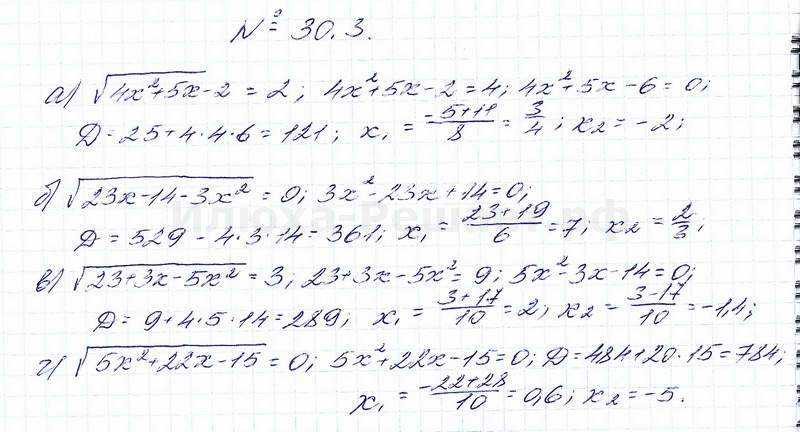 № 30.3.
а) √4x²+5x-2 = 2; 4x²+5x-2=4; 4x²+5x-6=0;
Д=25+4·4·6=121; x₁=(-5+11)/8=3/4; x₂=-2;
б) √23x-14-3x² = 0; 3x²-23x+14=0;
Д=529-4·3·14=361; x₁=(23+19)/6=7; x₂=2/3;
в) √23+3x-5x² = 3; 23+3x-5x²=9; 5x²-3x-14=0;
Д=9+4·5·14=289; x₁=(3+17)/10=2; x₂=(3-17)/10=-1,4;
г) √5x²+22x-15 = 0; 5x²+22x-15=0; Д=484+20·15=784;
x₁=(-22+28)/10=0,6; x₂=-5.